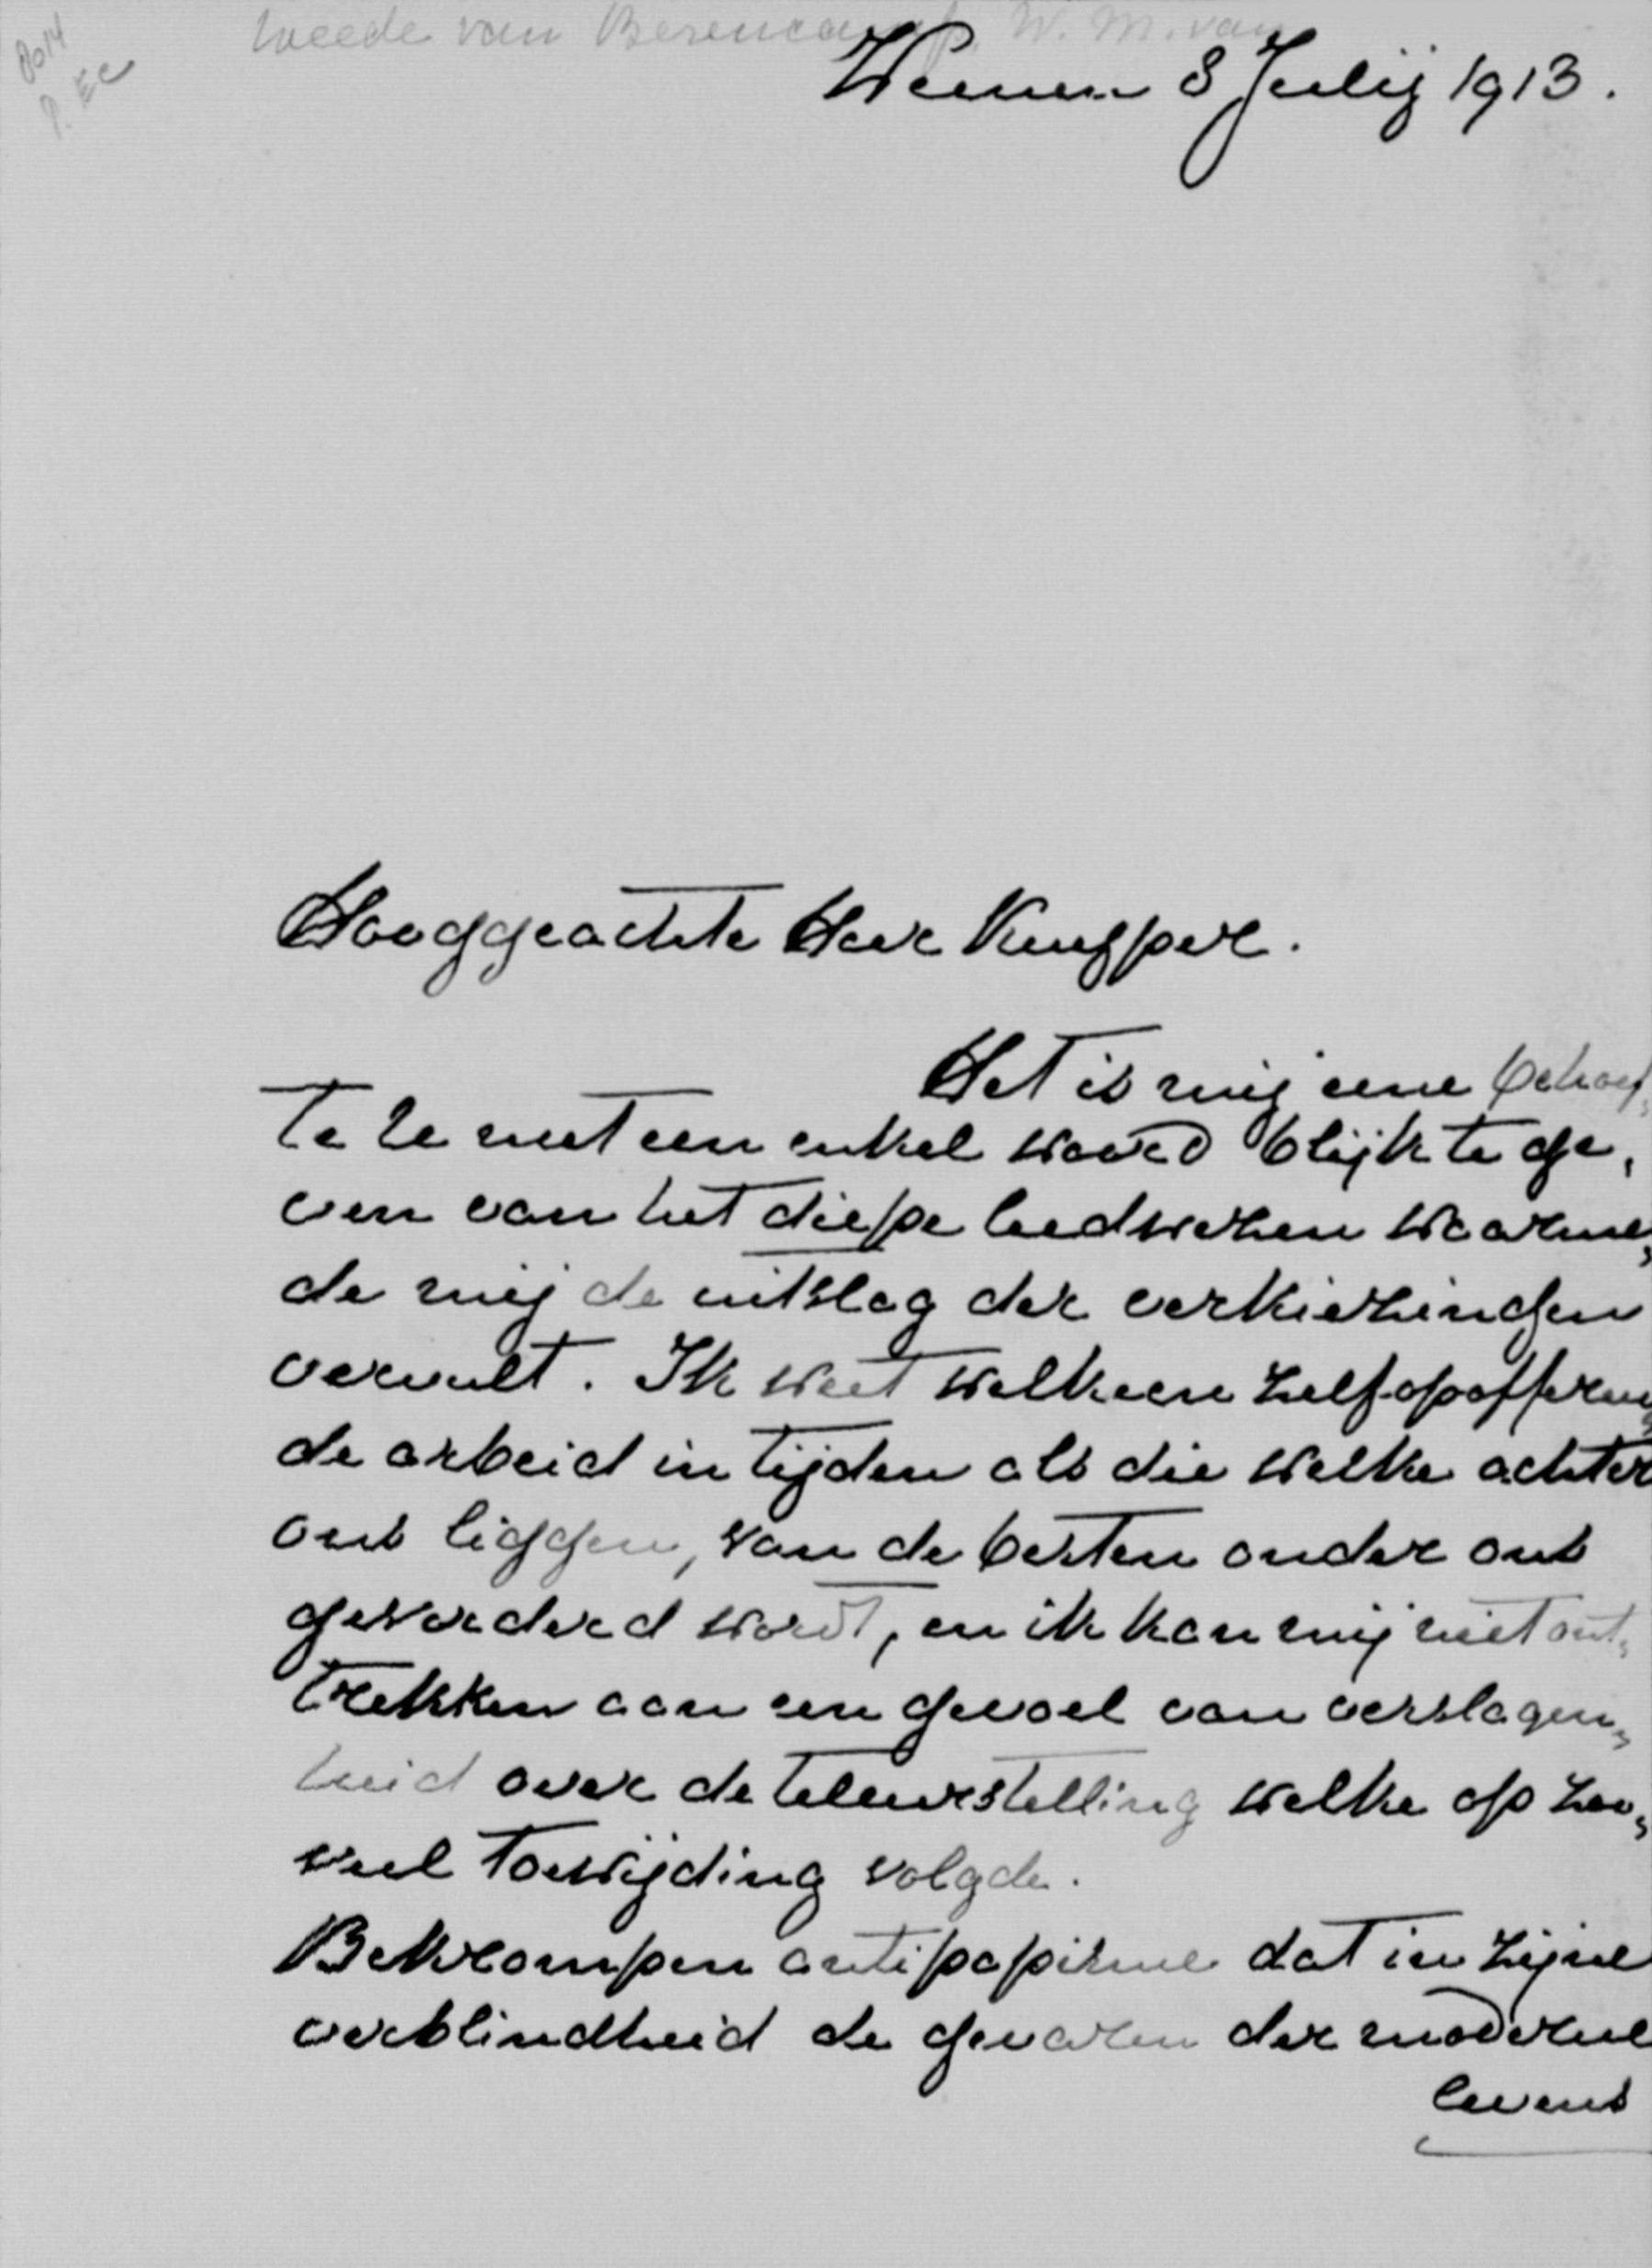 8014
P. EC
weede van Berencamp, W. M. van
Weenen 8 Julij 1913.
Hooggeachte Heer Kuyper.
Het is mij eene behoef,
te U met een enkel woord blijk te ge,
ven van het diepe leedwezen waarme,
de mij de uitslag der verkiezingen
vervult. Ik weet welk eene zelfopofferen,
de arbeid in tijden als die welke achter
ons liggen, van de besten onder ons
gevorderd wordt, en ik kan mij niet ont,
trekken aan een gevoel van verslagen,
heid over de teleurstelling welke op zoo,
veel toewijding volgde.
Bekrompen antipapisme dat in zijne
verblindheid de gevaren der moderne
levens